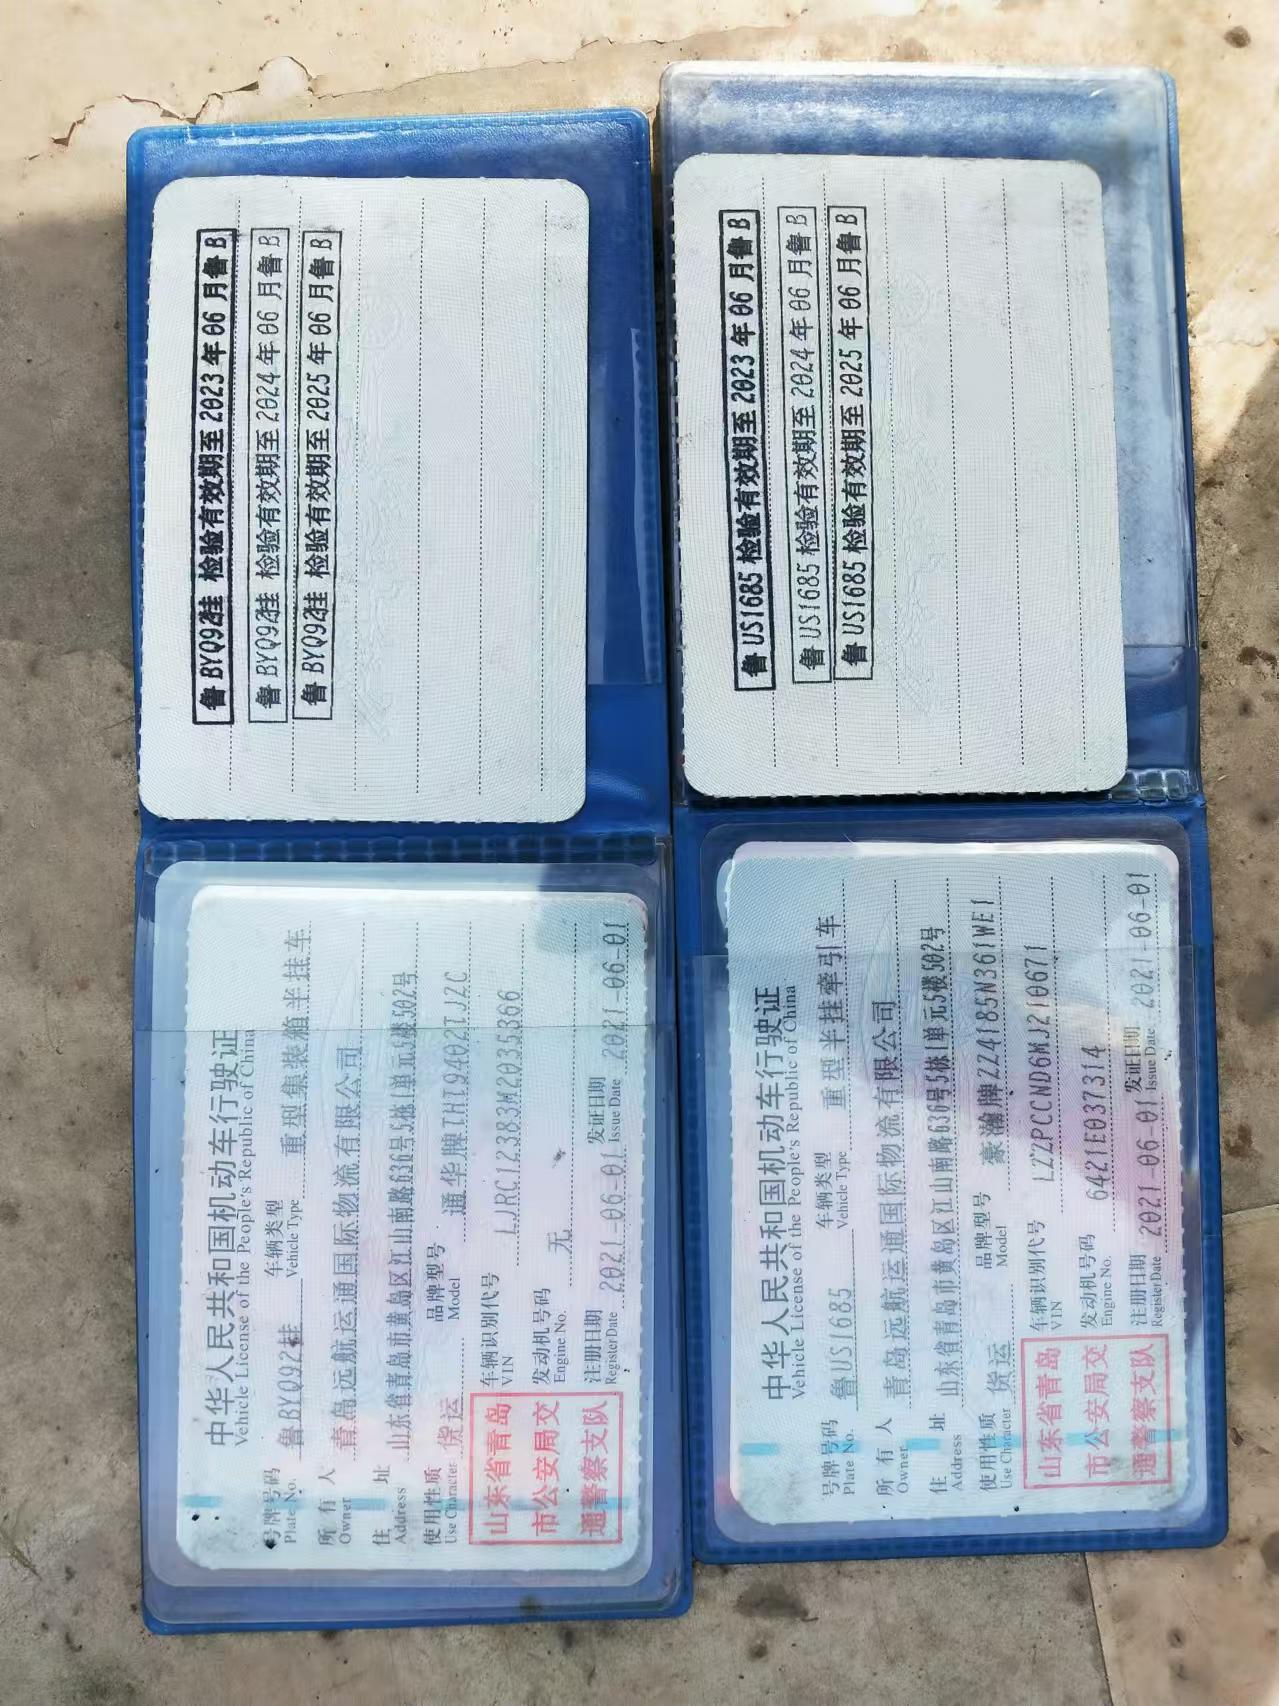 鲁 BYQ92挂 检验有效期至 2023 年 06 月鲁 B
鲁 BYQ92挂 检验有效期至 2024 年 06 月鲁 B
鲁 BYQ92挂 检验有效期至 2025 年 06 月鲁 B
鲁 US1685 检验有效期至 2023 年 06 月鲁 B
鲁 US1685 检验有效期至 2024 年 06 月鲁 B
鲁 US1685 检验有效期至 2025 年 06 月鲁 B
中华人民共和国机动车行驶证
Vehicle License of the People's Republic of China
号牌号码 鲁BYQ92挂 车辆类型 重型集装箱半挂车
Plate No. Vehicle Type
所有人 青岛远航运通国际物流有限公司
Owner
住址 山东省青岛市黄岛区江山南路636号5栋1单元5楼502号
Address
使用性质 货运 品牌型号 通华牌THT9402TJZC
Use Character Model
山东省青岛
市公安局交
通警察支队
车辆识别代号 LJRC12383M2035366
VIN
发动机号码 无
Engine No.
注册日期 2021-06-01 发证日期 2021-06-01
Register Date Issue Date
中华人民共和国机动车行驶证
Vehicle License of the People's Republic of China
号牌号码 鲁US1685 车辆类型 重型半挂牵引车
Plate No. Vehicle Type
所有人 青岛远航运通国际物流有限公司
Owner
住址 山东省青岛市黄岛区江山南路636号5栋1单元5楼502号
Address
使用性质 货运 品牌型号 豪瀚牌ZZ4185N361WE1
Use Character Model
山东省青岛
市公安局交
通警察支队
车辆识别代号 LZZPCCND6MJ210671
VIN
发动机号码 6421E037314
Engine No.
注册日期 2021-06-01 发证日期 2021-06-01
Register Date Issue Date